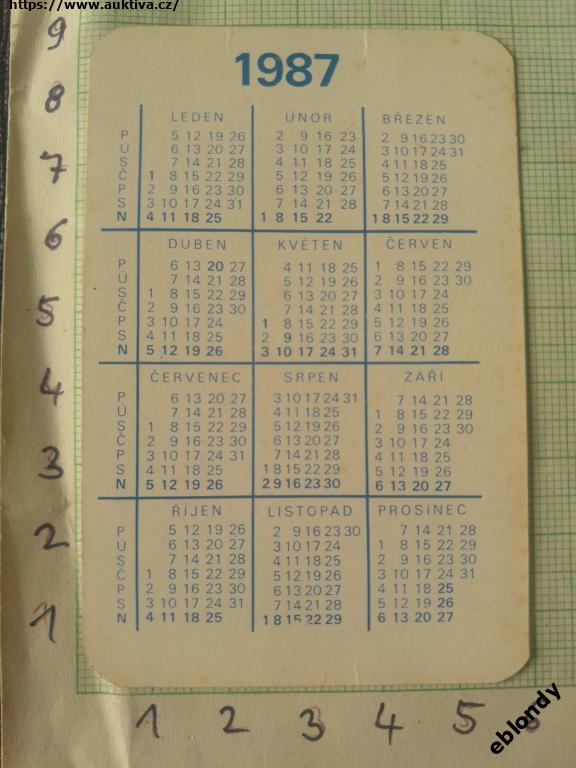 https://www.auktiva.cz/
1987
LEDEN ÚNOR BŘEZEN
P 5 12 19 26 2 9 16 23 2 9 16 23 30
Ú 6 13 20 27 3 10 17 24 3 10 17 24 31
S 7 14 21 28 4 11 18 25 4 11 18 25
Č 1 8 15 22 29 5 12 19 26 5 12 19 26
P 2 9 16 23 30 6 13 20 27 6 13 20 27
S 3 10 17 24 31 7 14 21 28 7 14 21 28
N 4 11 18 25 1 8 15 22 1 8 15 22 29
DUBEN KVĚTEN ČERVEN
P 6 13 20 27 4 11 18 25 1 8 15 22 29
Ú 7 14 21 28 5 12 19 26 2 9 16 23 30
S 1 8 15 22 29 6 13 20 27 3 10 17 24
Č 2 9 16 23 30 7 14 21 28 4 11 18 25
P 3 10 17 24 1 8 15 22 29 5 12 19 26
S 4 11 18 25 2 9 16 23 30 6 13 20 27
N 5 12 19 26 3 10 17 24 31 7 14 21 28
ČERVENEC SRPEN ZÁŘÍ
P 6 13 20 27 3 10 17 24 31 7 14 21 28
Ú 7 14 21 28 4 11 18 25 1 8 15 22 29
S 1 8 15 22 29 5 12 19 26 2 9 16 23 30
Č 2 9 16 23 30 6 13 20 27 3 10 17 24
P 3 10 17 24 31 7 14 21 28 4 11 18 25
S 4 11 18 25 1 8 15 22 29 5 12 19 26
N 5 12 19 26 2 9 16 23 30 6 13 20 27
ŘÍJEN LISTOPAD PROSINEC
P 5 12 19 26 2 9 16 23 30 7 14 21 28
Ú 6 13 20 27 3 10 17 24 1 8 15 22 29
S 7 14 21 28 4 11 18 25 2 9 16 23 30
Č 1 8 15 22 29 5 12 19 26 3 10 17 24 31
P 2 9 16 23 30 6 13 20 27 4 11 18 25
S 3 10 17 24 31 7 14 21 28 5 12 19 26
N 4 11 18 25 1 8 15 22 29 6 13 20 27
9
8
7
6
5
4
3
2
1
1 2 3 4 5
eblondy